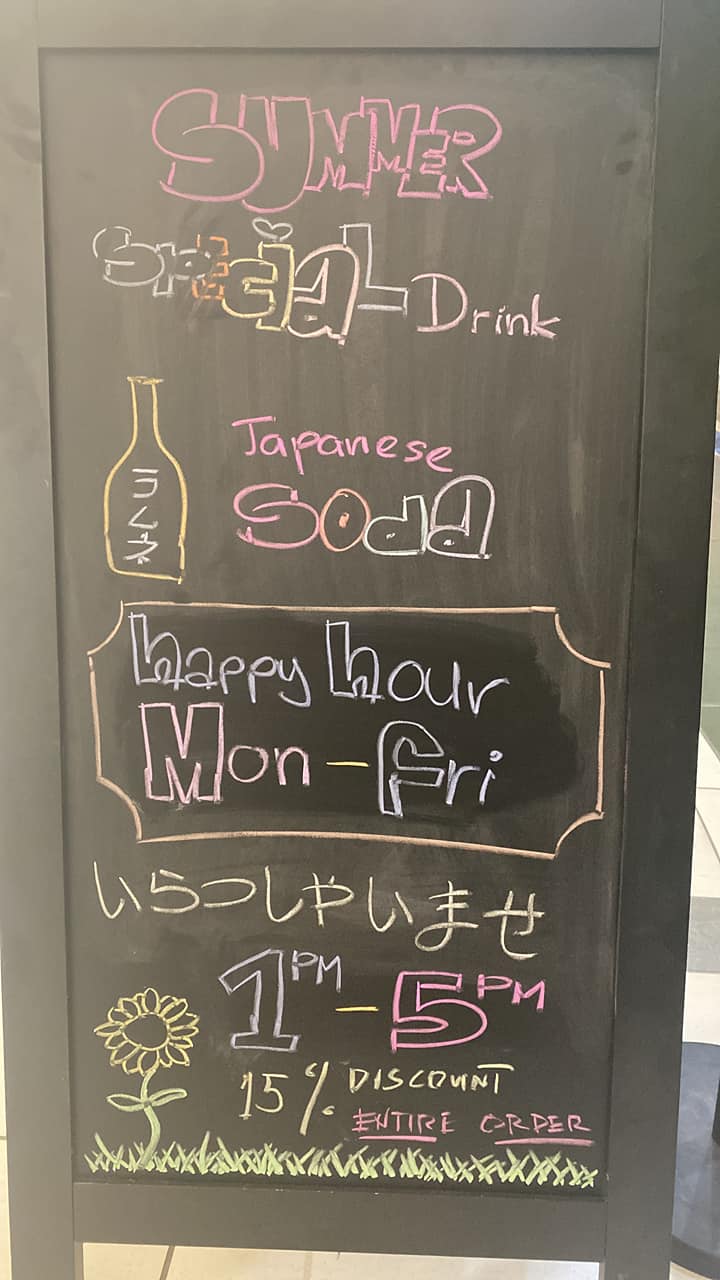 SUMMER
SPECIAL Drink
Japanese
Soda
ラムネ
happy hour
Mon - Fri
いらっしゃいませ
1PM - 5PM
15% DISCOUNT
ENTIRE ORDER